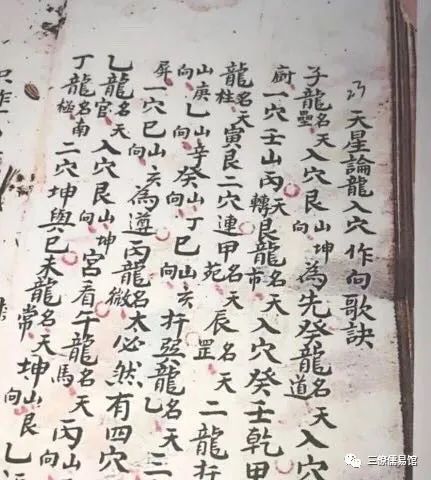 天星論龍入穴作向歌訣
子龍名天壘入穴艮山坤向為先癸龍名天道入穴
廚一穴壬山丙向轉艮龍名天市入穴癸壬乾甲
龍名天柱寅艮二穴連甲名天苑辰名天罡二龍扦
山庚向乙山辛向癸山丁向巳山亥向扦巽龍名天乙三
屏一穴巳山亥向為遵丙龍名太微必然有四穴
乙龍名天官入穴艮山坤向宮看午龍名天馬丙山向
丁龍名南極二穴坤與巳未龍名天常坤山艮向乙
只作
三僚儒易馆